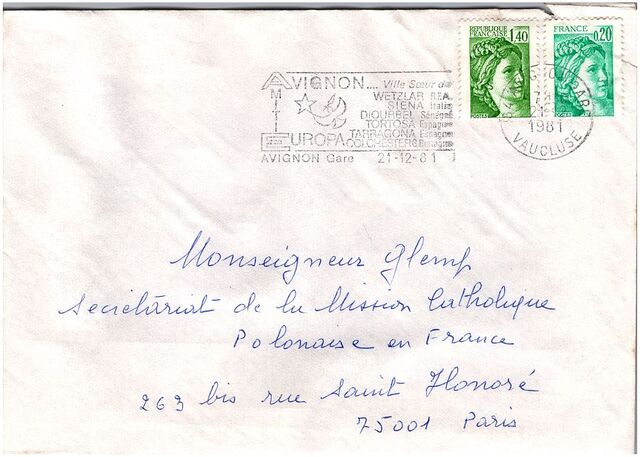 REPUBLIQUE FRANCAISE 1,40
POSTES
FRANCE 0,20
POSTES
AVIGNON.... Ville Sœur de
AMITIE
WETZLAR R.F.A.
SIENA Italie
DIOURBEL Sénégal
TORTOSA Espagne
TARRAGONA Espagne
EUROPA COLCHESTER
AVIGNON Gare 21-12-81
21-12
1981
VAUCLUSE
Monseigneur Glemp
Secrétariat de la Mission Catholique
Polonaise en France
263 bis rue Saint Honoré
75001 Paris